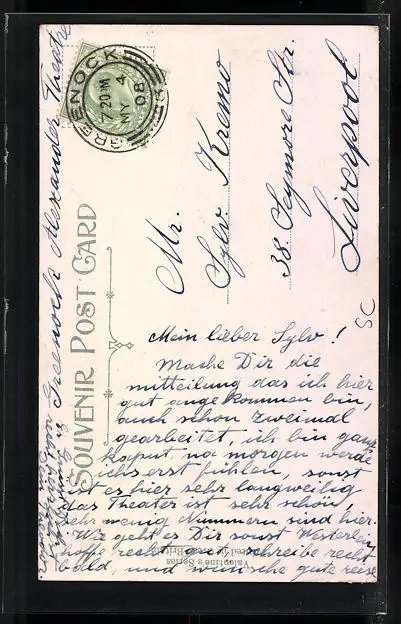 GREENOCK
7 20 PM
MY 4
08
SOUVENIR POST CARD
Mr.
Sylv. Kremo
38. Seymore Str.
Liverpool
SC
Mein lieber Sylv!
Mache Dir die
mitteilung das ich hier
gut angekommen bin,
auch schon zweimal
gearbeitet, ich bin ganz
kaput, na morgen werde
ichs erst fühlen, sonst
ist es hier sehr langweilig
das Theater ist sehr schön,
sehr wenig Nummern sind hier.
Wie geht es Dir sonst
hoffe recht gut, schreibe recht
bald, und wünsche gute reise
Greenock Alexander Theatre
Valentine's Series
Printed in Great Britain